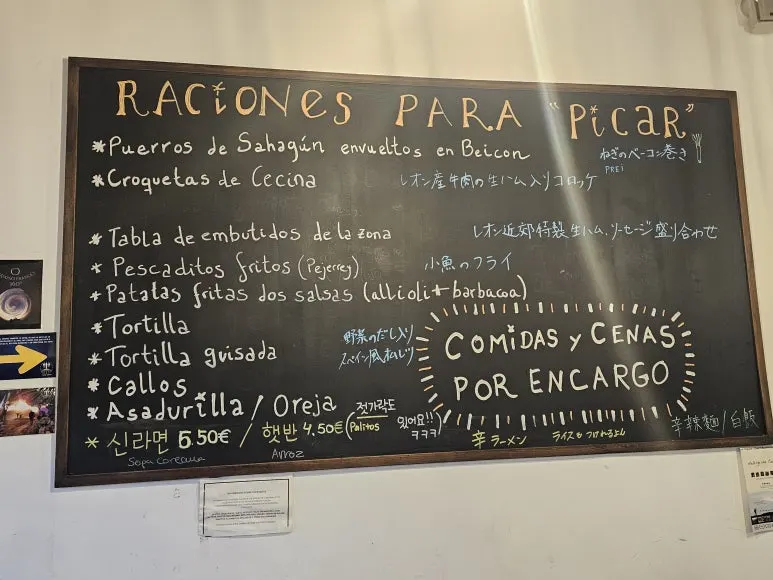 RACiONES PARA "PiCAR"
*Puerros de Sahagún envueltos en Beicon ねぎのベーコン巻き
PREI
*Croquetas de Cecina レオン産牛肉の生ハム入りコロッケ
*Tabla de embutidos de la zona レオン近郊特製生ハム、ソーセージ盛り合わせ
*Pescaditos fritos (Pejerrey) 小魚のフライ
*Patatas fritas dos salsas (allioli + barbacoa)
*Tortilla
*Tortilla guisada 野菜のだし入り
スペイン風オムレツ
*Callos
*Asadurilla / Oreja
COMiDAS y CENAS
POR ENCARGO
*신라면 6.50€ / 햇반 4.50€ (젓가락도 있어요!! ㅋㅋㅋ
Palitos
辛ラーメン ライスもつけれるよん 辛辣麵/白飯
Sopa coreana Arroz